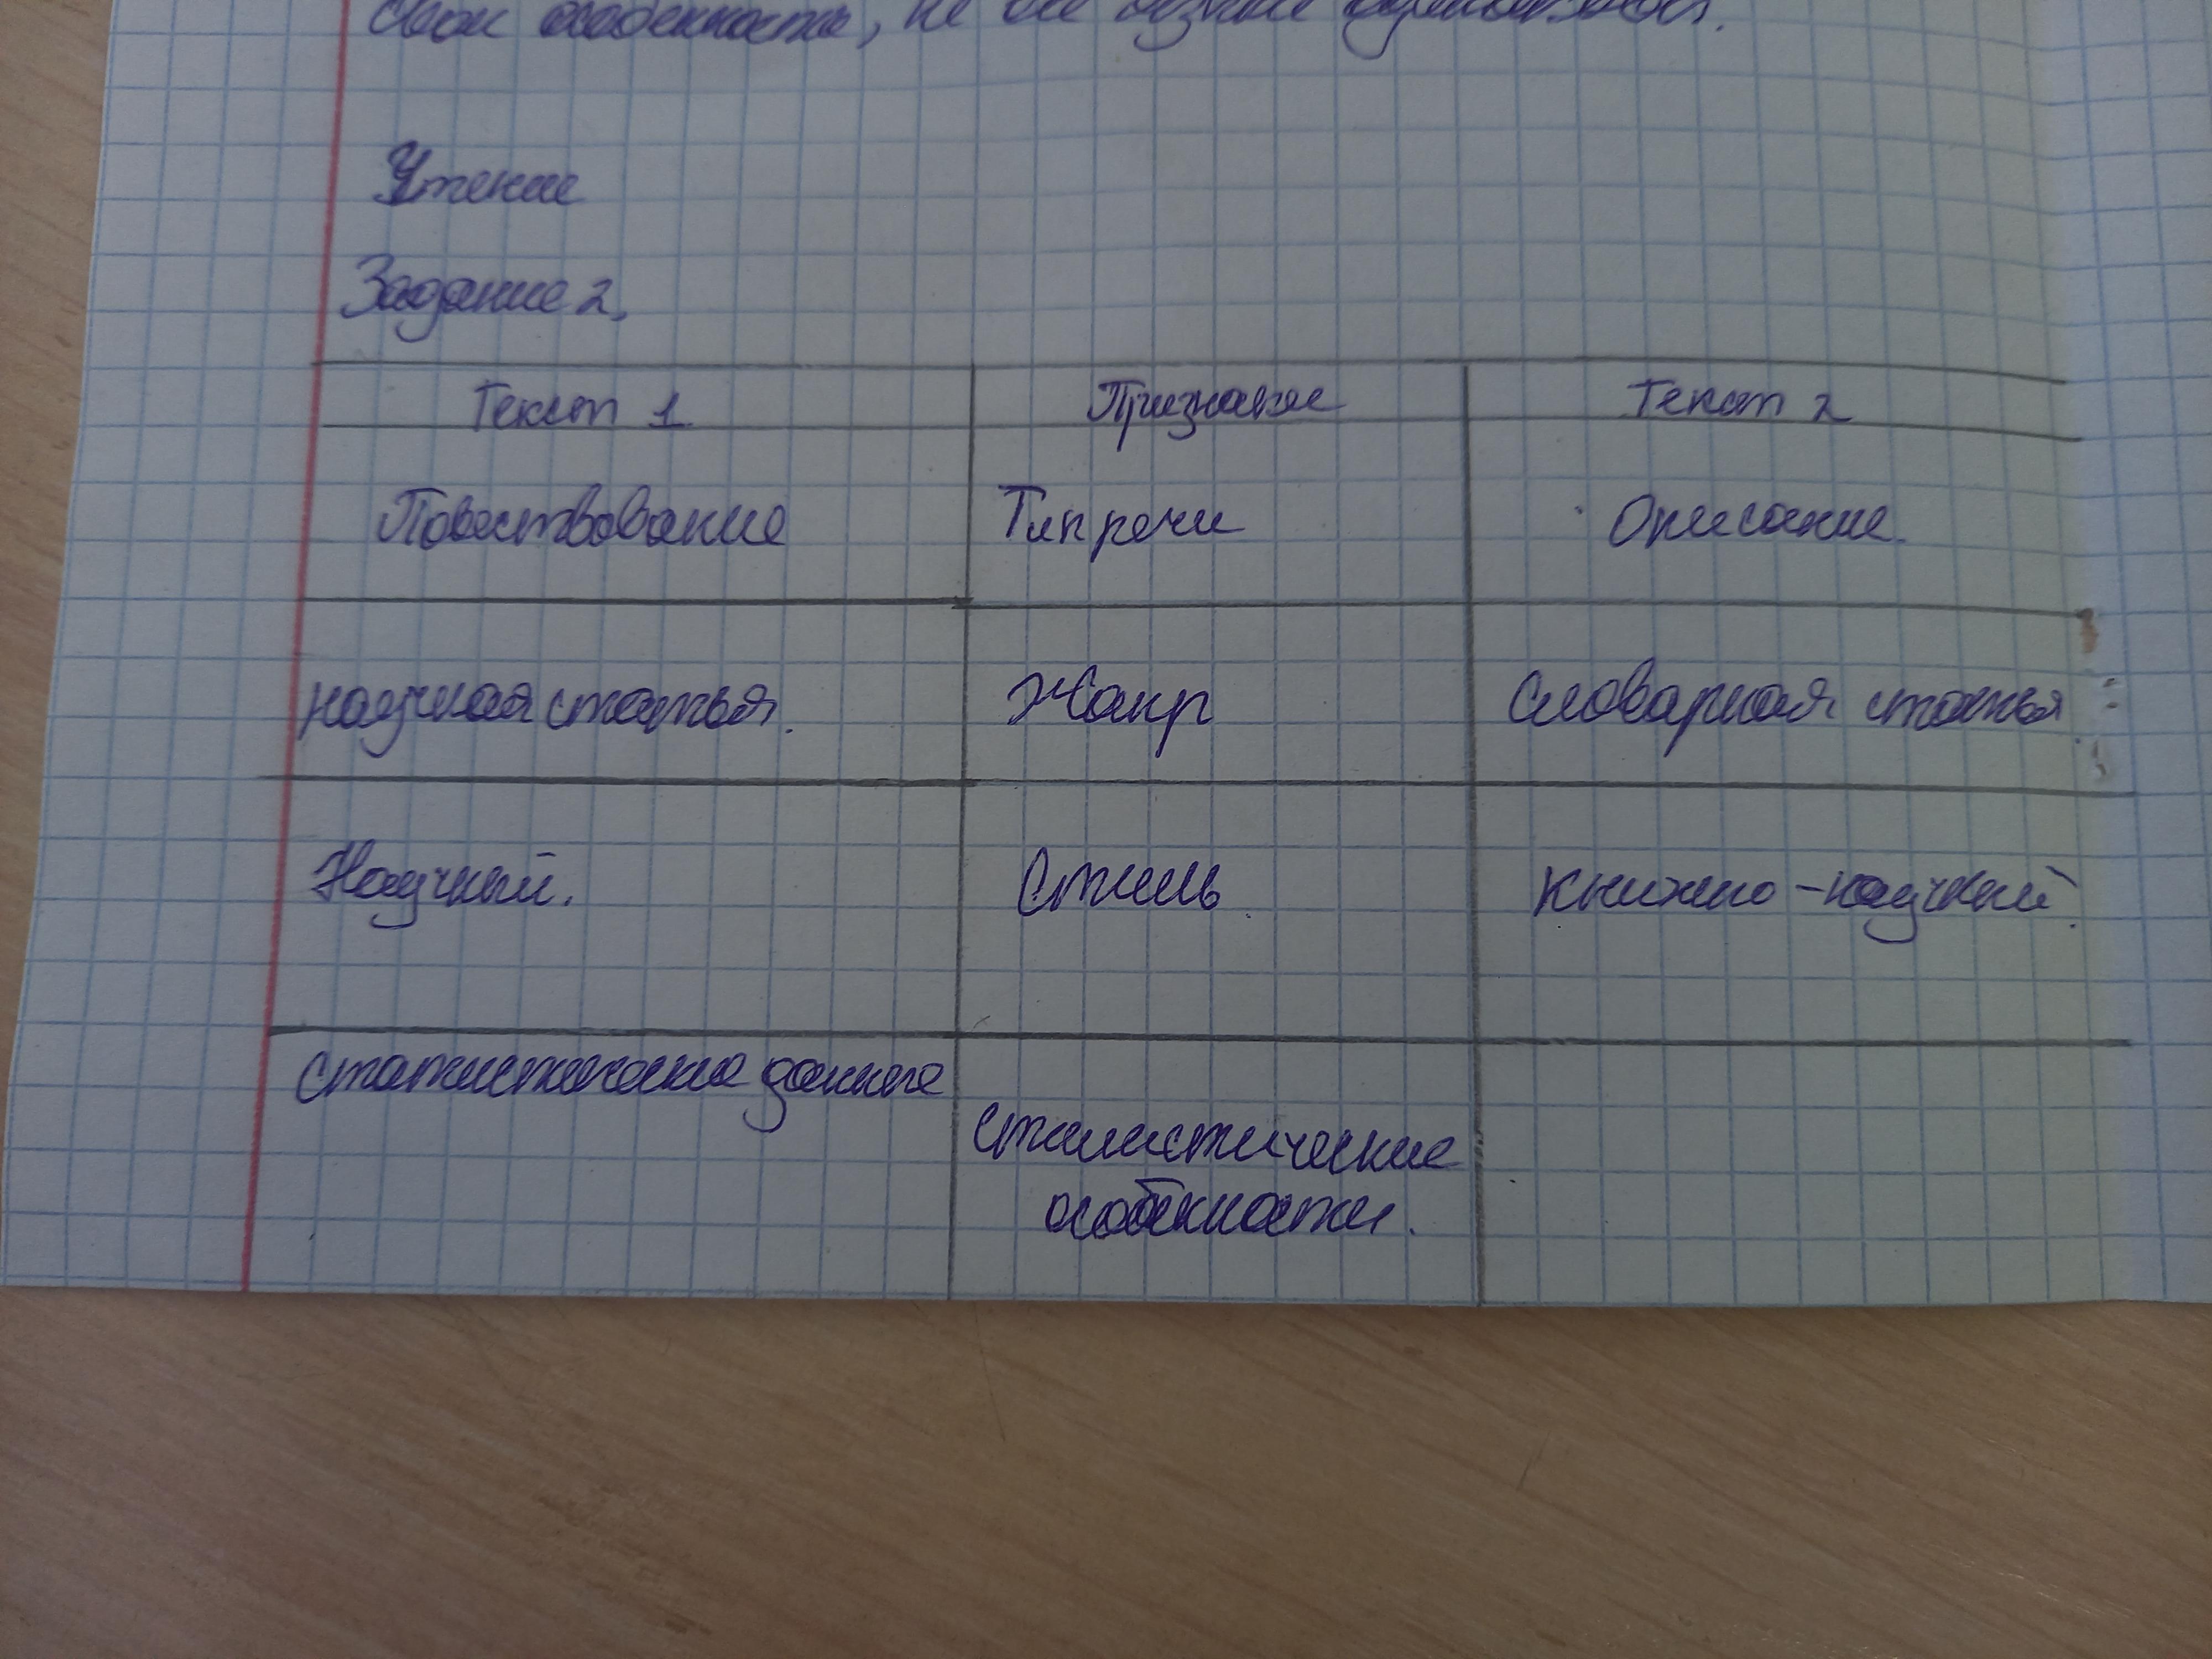 свои особенность, не все
Чтение
Задание 2.
Текст 1 Признание Текст 2
Повествование Тип речи Описание.
научная статья. Жанр Словарная статья
Научный. Стиль книжно-научный.
статистические данные
стилистические
особенности.